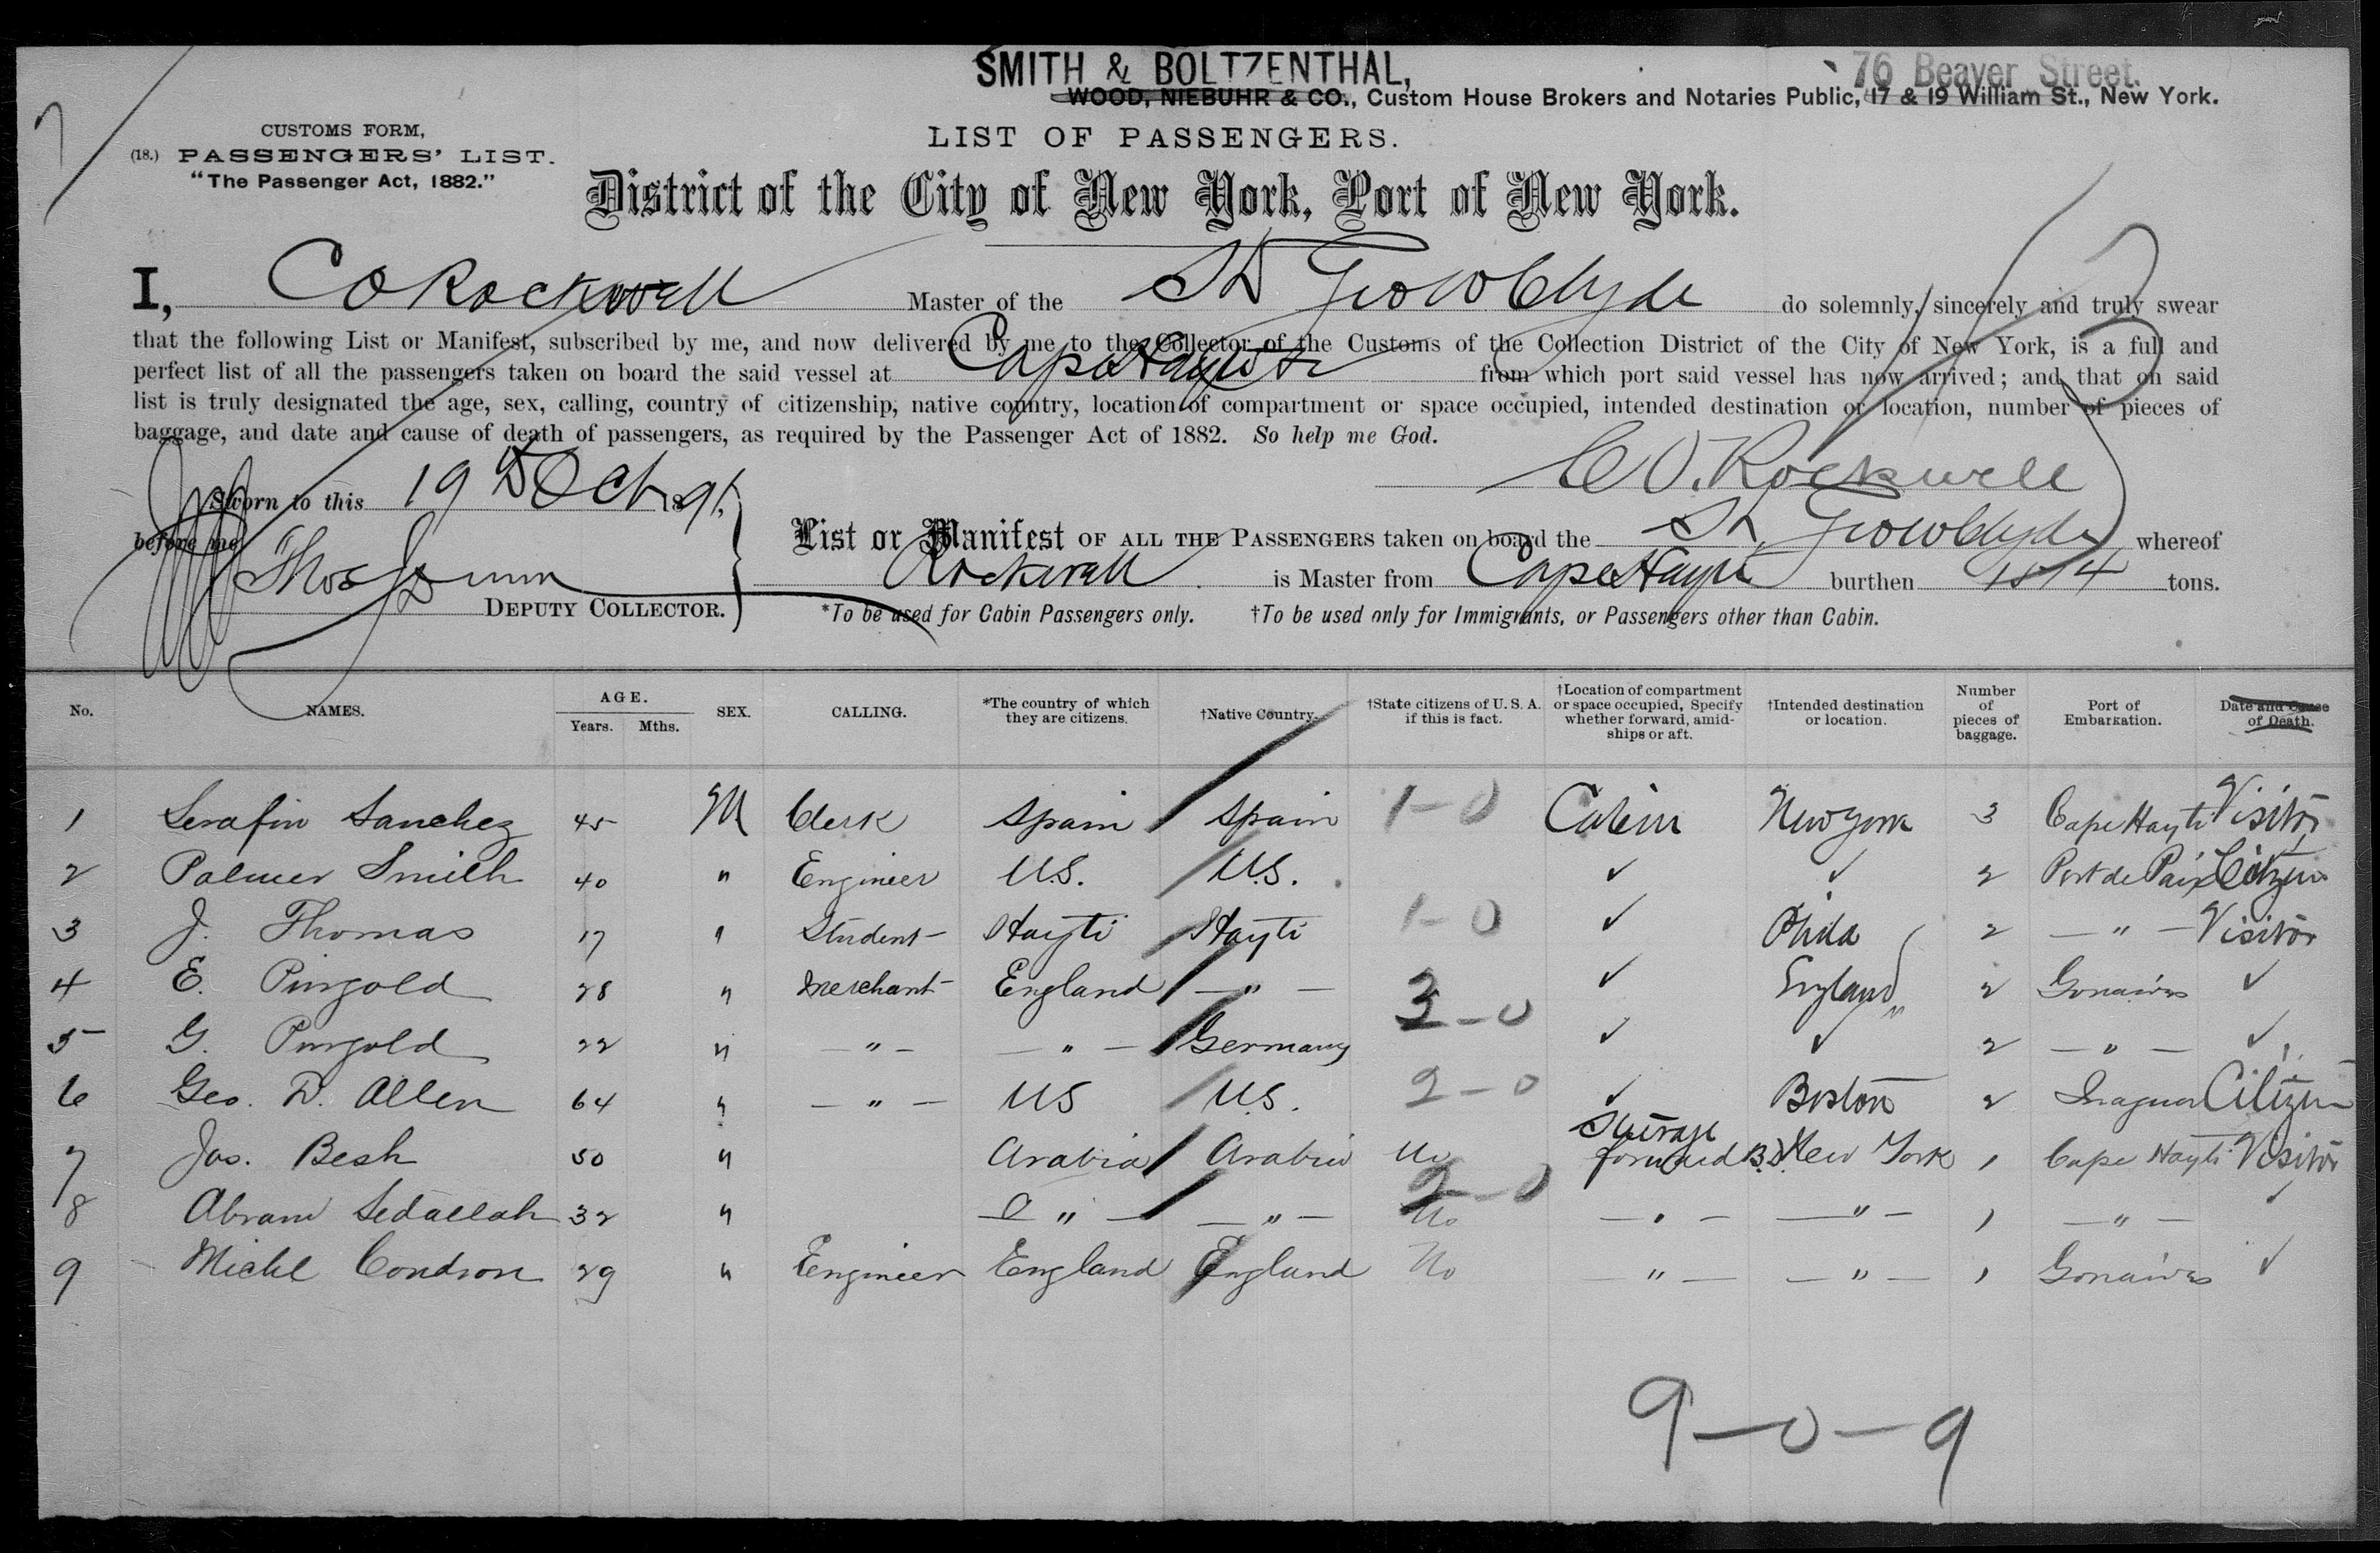 SMITH & BOLTZENTHAL, 76 Beaver Street.
WOOD, NIEBUHR & CO., Custom House Brokers and Notaries Public, 17 & 19 William St., New York.
CUSTOMS FORM,
(18.) PASSENGERS' LIST.
"The Passenger Act, 1882."
LIST OF PASSENGERS.
District of the City of New York, Port of New York.
I, C O Rockwell Master of the SS Geo W Clyde do solemnly, sincerely and truly swear
that the following List or Manifest, subscribed by me, and now delivered by me to the Collector of the Customs of the Collection District of the City of New York, is a full and
perfect list of all the passengers taken on board the said vessel at Cape Hayti from which port said vessel has now arrived; and that on said
list is truly designated the age, sex, calling, country of citizenship, native country, location of compartment or space occupied, intended destination or location, number of pieces of
baggage, and date and cause of death of passengers, as required by the Passenger Act of 1882. So help me God.
C O. Rockwell
Sworn to this 19 Oct 1891.
before me
Thos
DEPUTY COLLECTOR.
List or Manifest OF ALL THE PASSENGERS taken on board the Geo W Clyde whereof
Rockwell is Master from Cape Hayti burthen 1574 tons.
*To be used for Cabin Passengers only. †To be used only for Immigrants, or Passengers other than Cabin.
No. NAMES. AGE. Years. Mths. SEX. CALLING. *The country of which they are citizens. †Native Country. †State citizens of U. S. A. if this is fact. †Location of compartment or space occupied, Specify whether forward, amidships or aft. †Intended destination or location. Number of pieces of baggage. Port of Embarkation. Date and Cause of Death.
1 Serafin Sanchez 45 M Clerk Spain Spain 1-0 Cabin New York 3 Cape Hayti Visitor
2 Palmer Smith 40 " Engineer U.S. U.S. ✓ ✓ 2 Port de Paix Citizen
3 J. Thomas 17 " Student Hayti Hayti 1-0 ✓ Phila 2 — " — Visitor
4 E. Pingold 28 " Merchant England — " — 3-0 ✓ England 2 Gonaives ✓
5 G. Pingold 22 " — " — — " — Germany ✓ ✓ 2 — " — ✓
6 Geo. D. Allen 64 " — " — US U.S. 2-0 ✓ Boston 2 Inagua Citizen
7 Jas. Besh 50 " Arabia Arabia No Steerage forward B.D. New York 1 Cape Hayti Visitor
8 Abram Sedallah 32 " — " — — " — 2-0 No — " — — " — 1 — " — ✓
9 Michl Condron 29 " Engineer England England No " — — " — 1 Gonaives ✓
9-0-9